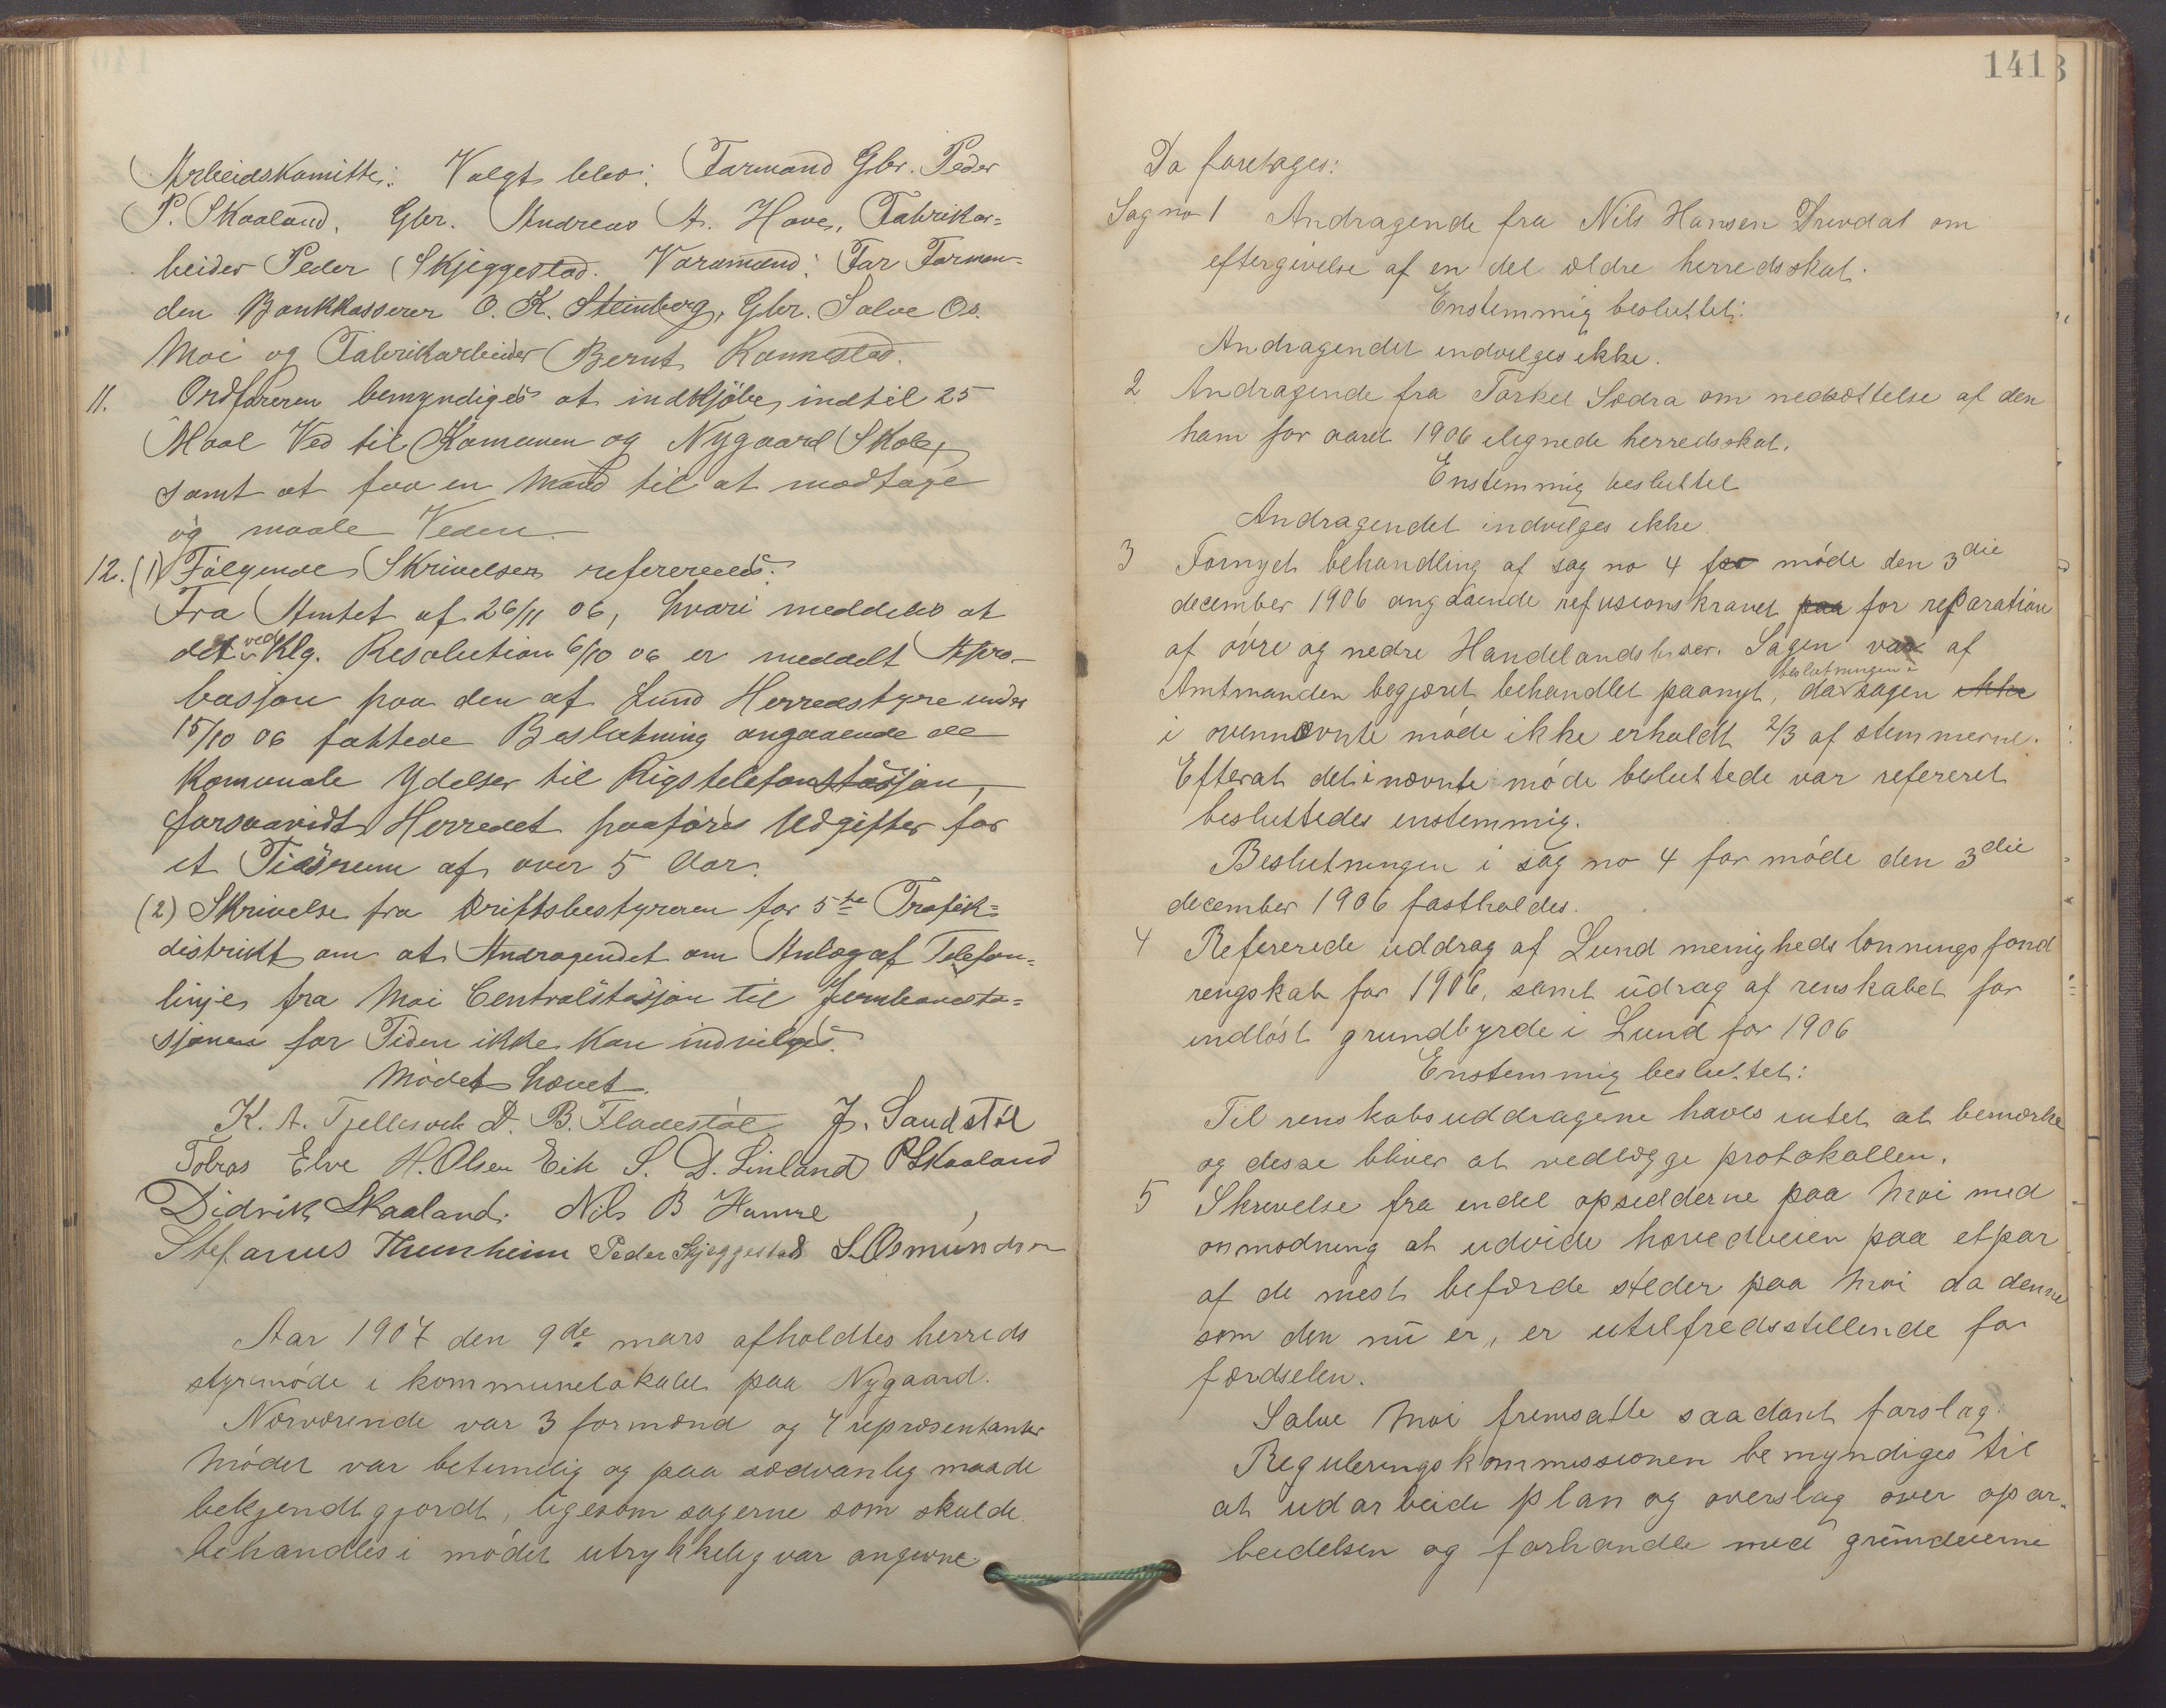 Arbeidskomitte: Valgt blev: Formand Gbr. Peder
P. Skaaland, Gbr. Andreas A. Hove, Fabrikar-
beider Peder Skjeggestad. Varamænd: For Forman-
den Bankkasserer O. K. Steinberg, Gbr. Salve Os.
Moi og Fabrikarbeider Bernt Rannestad.
11. Ordføreren bemyndiges at indkjøbe indtil 25
Maal Ved til Komunen og Nygaard Skole,
samt at faa en Mand til at modtage
og maale Veden.
12. (1) Følgende Skrivelser refereredes:
Fra Amtet af 26/11 06, hvori meddeles at
det ved Klg. Resolution 6/10 06 er meddelt Appro-
basjon paa den af Lund Herredstyre under
15/10 06 fattede Beslutning angaaende de
Komunale Ydelser til Rigstelefonstasjon,
forsaavidt Herredet paaføres Udgifter for
et Tidsrum af over 5 Aar.
(2) Skrivelse fra Driftsbestyreren for 5te Trafik-
distrikt om at Andragendet om Anlæg af Telefon-
linje fra Moi Centralstasjon til Jernbanesta-
sjonen for Tiden ikke kan indvilges.
Mødet hævet.
K. A. Fjellesvek D. B. Fladestøl J. Sandstøl
Tobias Elve H. Olsen Eik S. D. Linland P Skaaland
Didrik Skaaland. Nils B Hamre
Stefanus Thunheim Peder Skjeggestad S. Osmundsen
Aar 1907 den 9de mars afholdtes herreds
styremøde i kommunelokalet paa Nygaard.
Nærværende var 3 formænd og 7 repræsentanter
Mødet var betimelig og paa sædvanlig maade
bekjendtgjordt, ligesom sagerne som skulde
behandles i mødet utrykkelig var angivne
141
Da foretages:
Sag no 1 Andragende fra Nils Hansen Drivdal om
eftergivelse af en del ældre herredsskat.
Enstemmig besluttet:
Andragendet indvilges ikke.
2 Andragende fra Torkel Sædra om nedsættelse af den
ham for aaret 1906 ilignede herredsskat.
Enstemmig besluttet
Andragendet indvilges ikke.
3 Fornyet behandling af sag no 4 for møde den 3die
december 1906 angaaende refusionskravet paa for reparation
af øvre og nedre Handelandsbroer. Sagen var af
Amtmanden begjæret behandlet paanyt, da beslutningen i sagen ikke
i ovennævnte møde ikke erholdt 2/3 af stemmerne.
Efterat det i nævnte møde besluttede var refereret
besluttedes enstemmig.
Beslutningen i sag no 4 for møde den 3die
december 1906 fastholdes.
4 Refererede uddrag af Lund menigheds lønningsfond
rengskab for 1906, samt udrag af renskabet for
indløst grundbyrde i Lund for 1906
Enstemmig besluttet:
Til renskabsuddragene haves intet at bemærke
og desse bliver at vedlægge protokollen.
5 Skrivelse fra endel opsidderne paa Moi med
anmodning at udvide hovedveien paa etpar
af de mest befærde steder paa Moi da denne
som den nu er, er utilfredsstillende for
færdselen.
Salve Moi fremsatte saadant forslag:
Reguleringskommissionen bemyndiges til
at udarbeide plan og overslag over opar-
beidelsen og forhandle med grundeierne